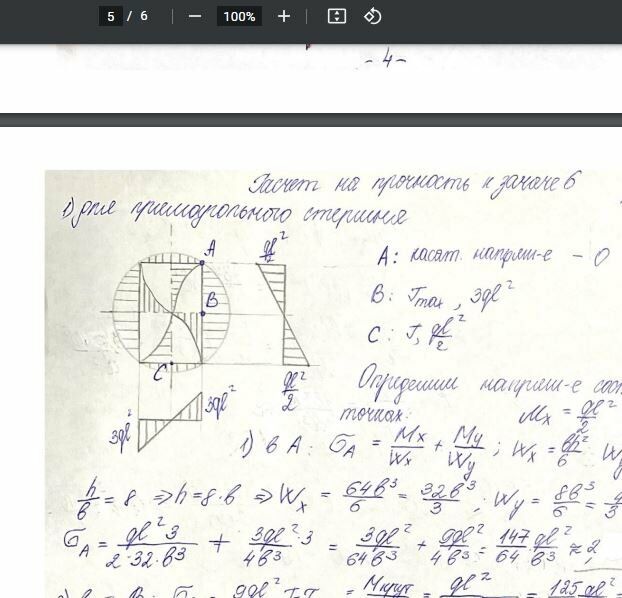 5 / 6 — 100% +
- 4 -
Расчет на прочность к задаче 6
1) для прямоугольного стержня
A
ql²/2
A: касат. напряж-е - 0
B
B: τmax, 3ql²
C
C: τ, ql²/2
3ql²
3ql²
ql²/2
Определим напряж-е
точках: Mx = ql²/2
1) в A: σA = Mx/Wx + My/Wy ; Wx = bh²/6
h/b = 8 ⇒ h = 8·b ⇒ Wx = 64b³/6 = 32b³/3 ; Wy = 8b³/6 = 4/3
σA = ql²3/2·32·b³ + 3ql²·3/4b³ = 3ql²/64b³ + 9ql²/4b³ = 147/64 ql²/b³ ≈ 2,
9ql²
= Mкрут = ql² = 125ql²